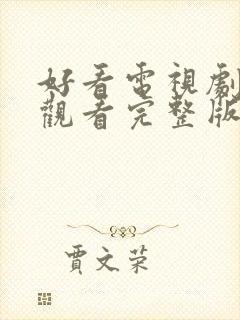 好看電視劇
觀看完整版
賈文荣